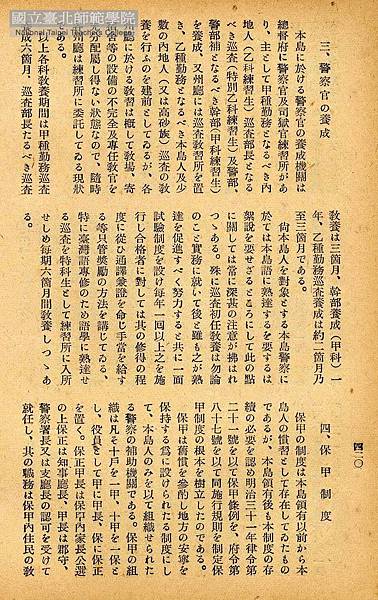 國立臺北師範學院
National Taipei Teachers College
三、警察官の養成
本島に於ける警察官の養成機關は
總督府に警察官及司獄官練習所があ
り、主として甲種勤務となるべき內
地人(乙科練習生)巡査部長となる
べき巡査(特別乙科練習生)及警部、
警部補となるべき幹部(甲科練習生)
を養成、又州廳には巡査教習所を置
き、乙種勤務となるべき本島人及少
數の內地人(又は高砂族)巡査の教
養を行ふのを建前としてゐるが、各
廳に於ける教習は概して教場、寄
宿
舍等の設備の不完全及專任教官を
分配屬し得ない狀態なので、隨時
州廳は練習所に委託してゐる現狀
である。
以上各科教養期間は甲種勤務巡査
養成六箇月、巡査部長たるべき巡査
教養は三箇月、幹部養成(甲科)一
年、乙種勤務巡査養成は約二箇月乃
至三箇月である。
尙本島人を對象とする本島警察に
於ては本島語に熟達するを要するは
絮說を要せざるところにして此の點
に關しては常に深甚の注意が拂はれ
つゝある。殊に巡査初任教養は勿論
のこと實務に就いて後と雖も之が熟
達を促進すべく努力すると共に一面
試驗制度を設け每年一回以上之を施
行し合格者に對しては其の修得の程
度に從ひ通譯兼證を命じ手當を給す
る等只管獎勵の方法を講じてゐる、
特に臺灣語專修のため語學に熟達せ
る巡査を特科生として練習所に入所
せしめ每期六箇月間教養しつゝあ
る。
四、保甲制度
四二〇
保甲の制度は本島領有以前から本
島人の慣習として存在してゐたもの
であるが、本島領有後も本制度の存
續の必要を認め明治三十一年律令第
二十一號を以て保甲條例を、府令第
八十七號を以て同施行規則を制定保
甲制度の根本を樹立したのである。
保甲は舊慣を參酌し地方の安寧を
保持する爲に設けられたる制度にし
て、本島人のみを以て組織せられた
る警察の補助機關である。保甲の組
織は凡そ十戶を一甲、十甲を一保と
し、役員として甲に甲長、保に保正
を置く。保正甲長は保甲內家長公選
の上保正は知事廳長、甲長は郡守、
警察署長又は支廳長の認可を受けて
就任し、其の職務は保甲內住民の教